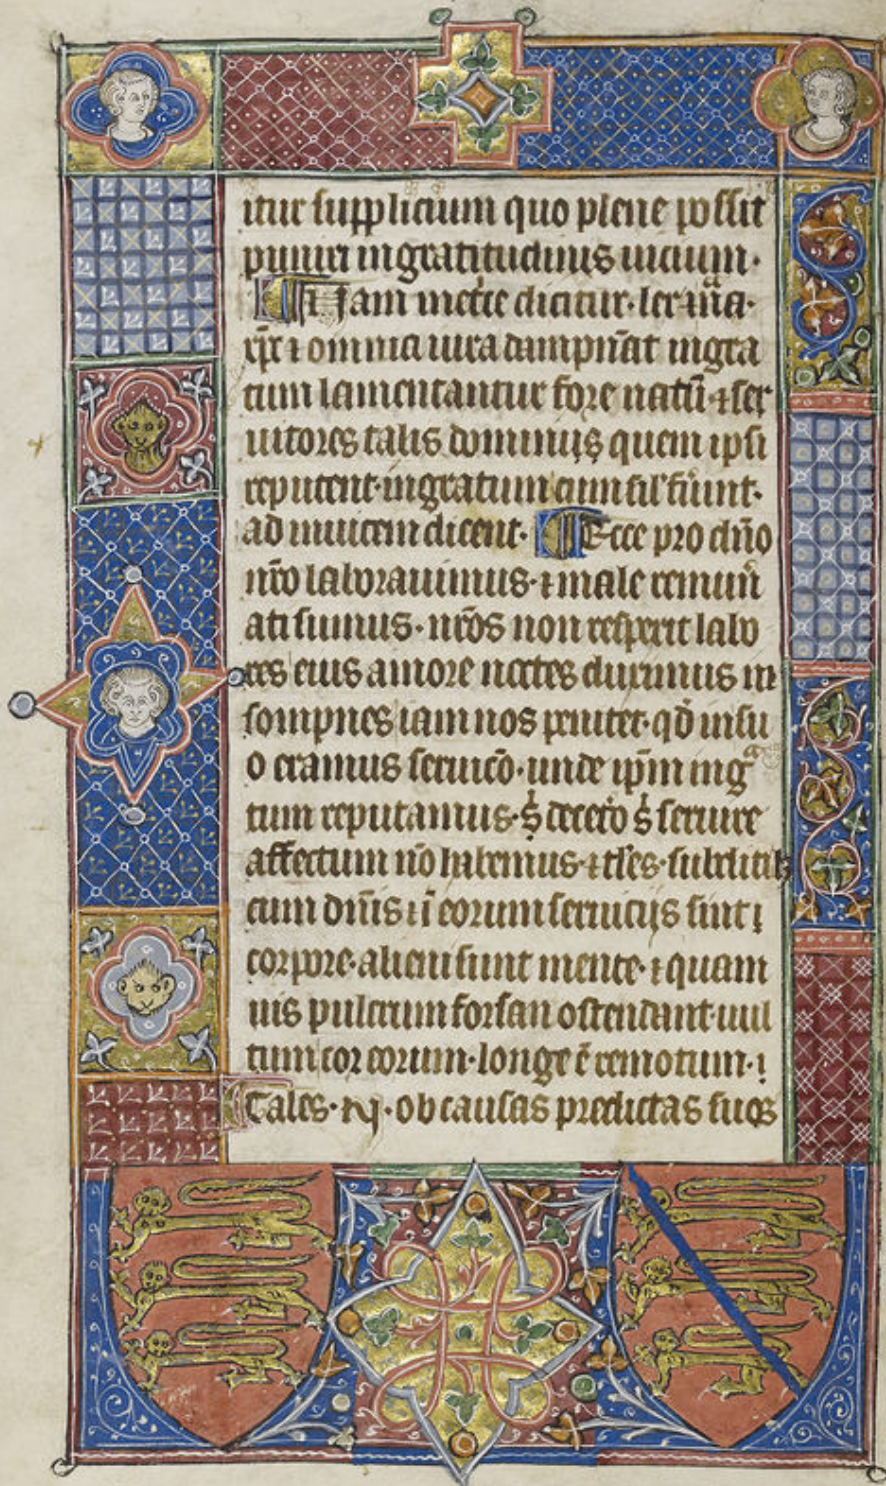 itur supplicium quo plene possit
puniri ingratitudinis uicium·
¶ Nam merito dicitur·
om̄ia iura dampnāt ingra
tum lamentantur fore natū ⁊ ser
uitores talis dominus quem ipsi
reputent·ingratum cum sil̕ fiūnt·
ad inuicem dicent· ¶ Ecce pro dn̄o
nr̄o laborauimus·⁊ male remun̄
ati sumus·nr̄os non respexit labo
res eius amore noctes duximus in
sompnes iam nos penitet·qd̄ in su
o eramus seruicō·unde ip̄m ingᵃ
tum reputamus· decetō seruire
affectum nō habemus·⁊ tl̄es·subditi
cum dn̄is ⁊ ī eorum seruicijs sint ı
corpore·alieni sunt mente·⁊ quam
uis pulcrum forsan ostendant·uul
tum cor eorum·longe ē remotum·ı
Tales· ob causas predictas suos